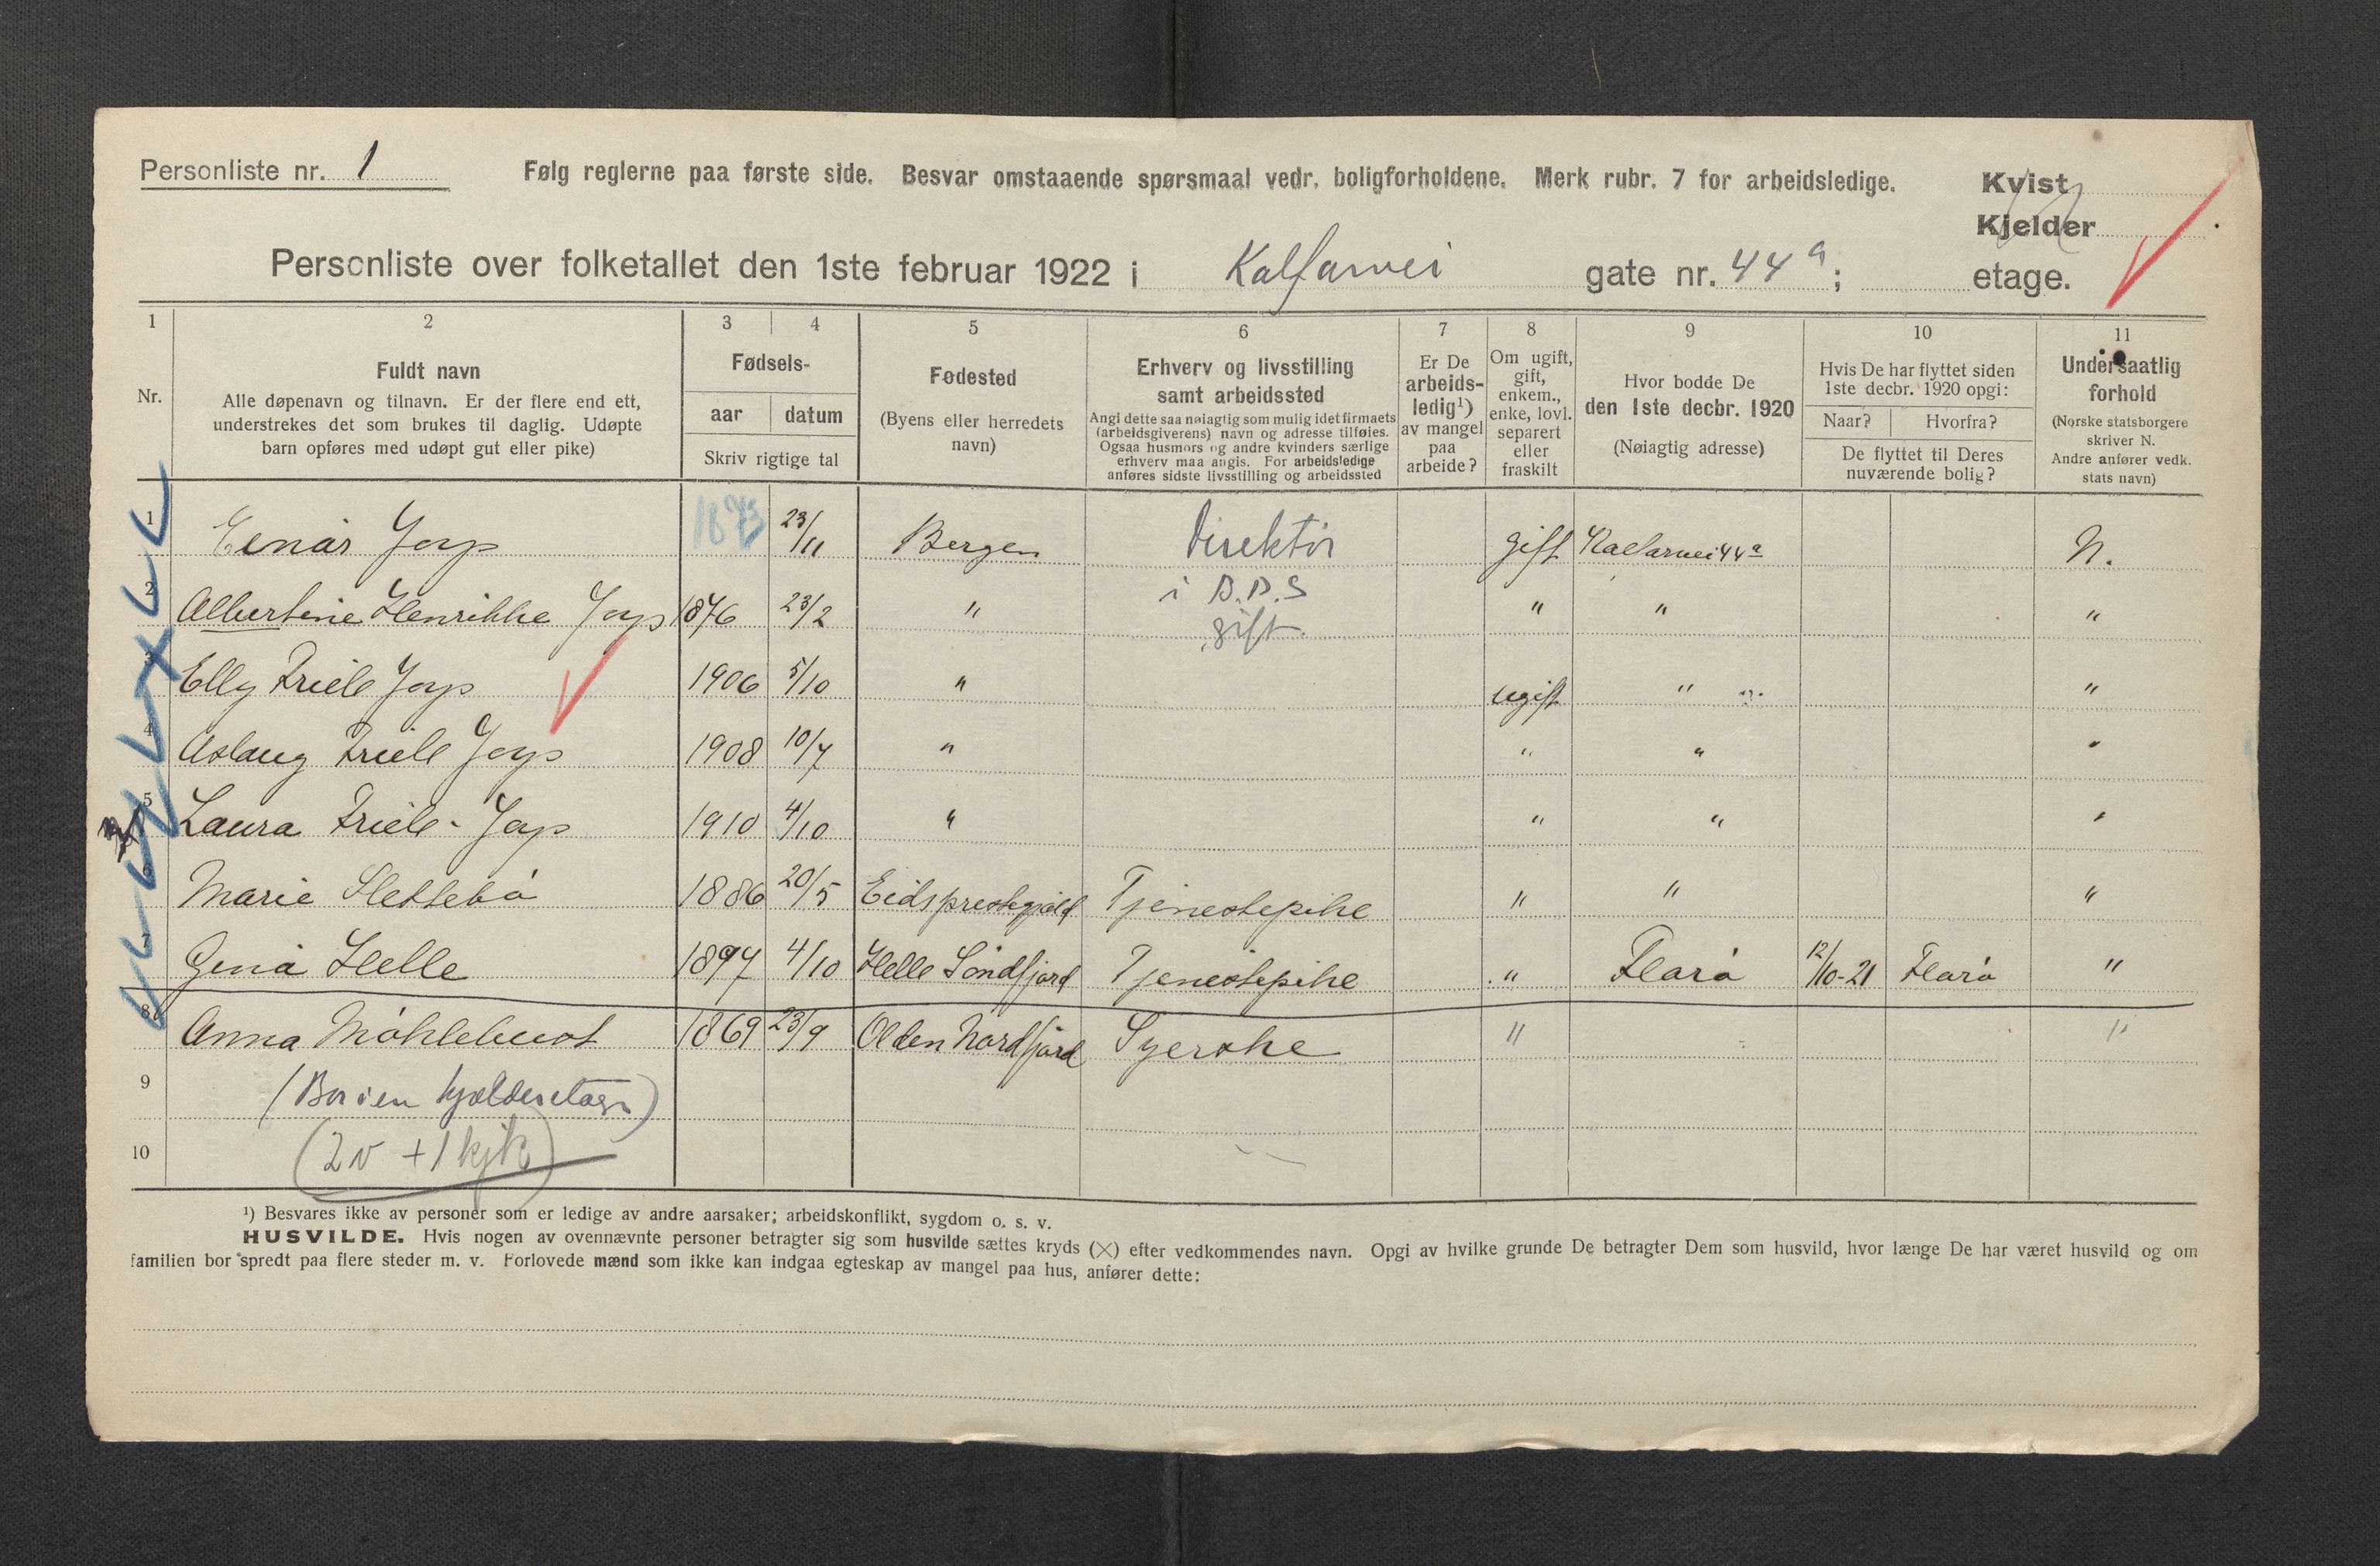 Personliste nr. 1
Følg reglerne paa første side. Besvar omstaaende spørsmaal vedr. boligforholdene. Merk rubr. 7 for arbeidsledige.
Kvist
Kjelder
Personliste over folketallet den 1ste februar 1922 i Kalfarvei gate nr. 44 a; etage.
1 2 3 4 5 6 7 8 9 10 11
Nr.
Fuldt navn
Alle døpenavn og tilnavn. Er der flere end ett,
understrekes det som brukes til daglig. Udøpte
barn opføres med udøpt gut eller pike)
Fødsels-
aar datum
Skriv rigtige tal
Fødested
(Byens eller herredets
navn)
Erhverv og livsstilling
samt arbeidssted
Angi dette saa nøiagtig som mulig idet firmaets
(arbeidsgiverens) navn og adresse tilføies.
Ogsaa husmors og andre kvinders særlige
erhverv maa angis. For arbeidsledige
anføres sidste livsstilling og arbeidssted
Er De
arbeids-
ledig¹)
av mangel
paa
arbeide?
Om ugift,
gift,
enkem.,
enke, lovl.
separert
eller
fraskilt
Hvor bodde De
den 1ste decbr. 1920
(Nøiagtig adresse)
Hvis De har flyttet siden
1ste decbr. 1920 opgi:
Naar? Hvorfra?
De flyttet til Deres
nuværende bolig?
Undersaatlig
forhold
(Norske statsborgere
skriver N.
Andre anfører vedk.
stats navn)
1 Einar Joys 1873 23/11 Bergen Direktør gift Kalfarvei 44 a N.
i B.D.S
2 Albertine Henrikke Joys 1876 23/2 " gift. " " "
3 Elly Friele Joys 1906 5/10 " ugift " " "
4 Aslaug Friele Joys 1908 10/7 " " " "
5 Laura Friele - Joys 1910 4/10 " " " "
6 Marie Slettebø 1886 20/5 Eidsprestegjæld Tjenestepike " " "
7 Gina Helle 1897 4/10 Helle Söndfjord Tjenestepike " Florø 12/10-21 Florø "
8 Anna Möhlebust 1869 23/9 Olden Nordfjord Syerske " "
9 (Bor i en kjælderetage)
10 (2 v + 1 kjk)
¹) Besvares ikke av personer som er ledige av andre aarsaker; arbeidskonflikt, sygdom o. s. v.
HUSVILDE. Hvis nogen av ovennævnte personer betragter sig som husvilde sættes kryds (×) efter vedkommendes navn. Opgi av hvilke grunde De betragter Dem som husvild, hvor længe De har været husvild og om
familien bor spredt paa flere steder m. v. Forlovede mænd som ikke kan indgaa egteskap av mangel paa hus, anfører dette: